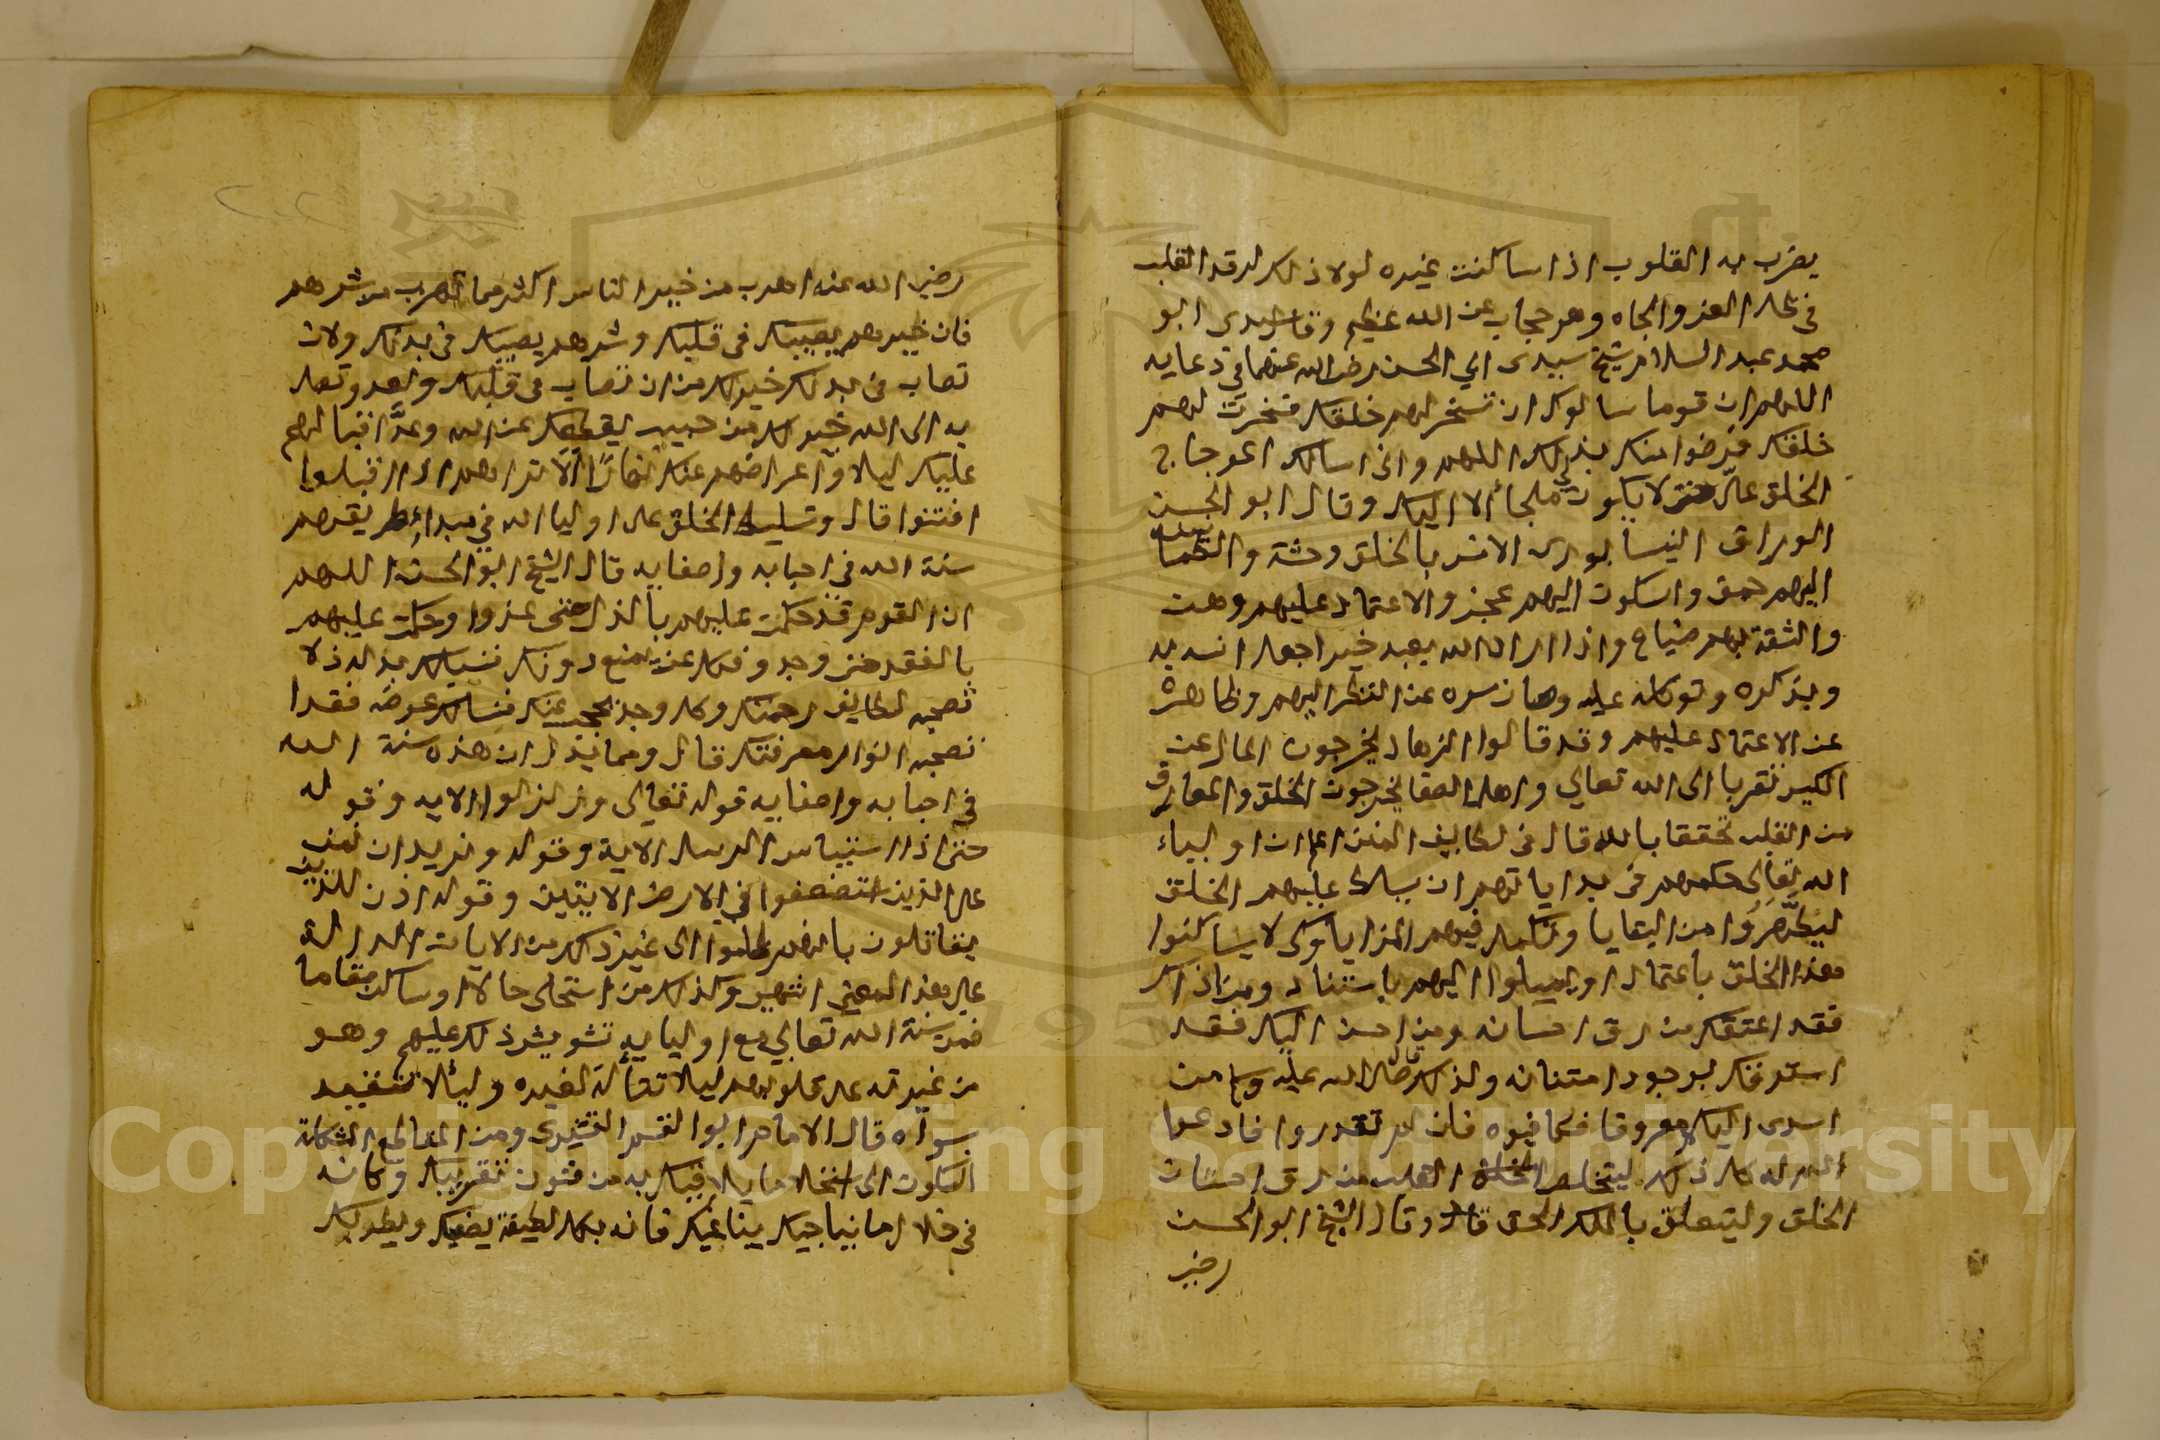 يضرب به القلوب اذا ساكنت غيره لولا ذلك لرقد القلب
في ظل العز والجاه وهو حجاب عن الله عظيم وقال سيدى ابو
محمد عبد السلام شيخ سيدى ابي الحسن رضي الله عنهما في دعايه
اللهم ان قوما سالوك ان تسخر لهم خلقك فسخرت لهم
خلقك فرضوا منك بذلك اللهم واني اسالك اعوجاج
الخلق علي حتى لا يكون لي ملجأ الا اليك وقال ابو الحسن
الوراق النيسابورى الانس بالخلق وحشة والطمانينة
اليهم حمق والسكون اليهم عجز والاعتماد عليهم وهن
والثقة بهم ضياع واذا اراد الله بعبد خيرا جعل انسه به
وبذكره وتوكله عليه وصان سره عن النظر اليهم وظاهره
عن الاعتماد عليهم وقد قالوا الزهاد يخرجون المال عن
الكيس تقربا الى الله تعالي واهل الصفا يخرجون الخلق والمعارف
من القلب تحققا بالله قال في لطايف المنن اعلم ان اولياء
الله تعالى حكمهم في بداياتهم ان يسلط عليهم الخلق
ليطهروا من البقايا وتكمل فيهم المزايا وكى لا يساكنوا
هذا الخلق باعتماد او يميلوا اليهم باستناد ومن اذاك
فقد اعتقك من رق احسانه ومن احسن اليك فقد
استرقك بوجود امتنانه ولذلك قال صلى الله عليه وسلم من
اسدى اليكم معروفا فكافيوه فان لم تقدروا فادعوا
الله له كل ذلك ليتخلص القلب من رق احسان
الخلق وليتعلق بالملك الحق قال وقال الشيخ ابو الحسن
رضي
رضي الله عنه اهرب من خير الناس اكثر مما تهرب من شرهم
فان خيرهم يصيبك في قلبك وشرهم يصيبك في بدنك ولان
تصاب في بدنك خير لك من ان تصاب في قلبك ولعدو تصل
به الى الله خير لك من حبيب يقطعك عن الله وعد اقبالهم
عليك ليلا واعراضهم عنك نهارا الا تراهم اذا اقبلوا
افتتنوا قال وتسليط الخلق على اوليا الله في مبداء طريقهم
سنة الله في احبابه واصفيايه قال الشيخ ابو الحسن اللهم
ان القوم قد حكمت عليهم بالذل حتى عزوا وحكمت عليهم
بالفقد حتى وجدوا فكل عز يمنع دونك فنسيلك بدله ذلا
تصحبه لطايف رحمتك وكل وجد يحجب عنك فنسالك عوضه فقدا
تصحبه انوار معرفتك قال ومما يدل ان هذه سنة الله
في احبابه واصفيايه قوله تعالى وزلزلوا الايه وقوله
حتى اذا استيأس الرسل الاية وقوله ونريد ان نمن
على الذين استضعفوا في الارض الايتين وقوله اذن للذين
يقاتلون بانهم ظلموا الى غير ذلك من الايات الدالة
على هذا المعنى انتهى وكذلك من استحلى حالا او ساكن مقاما
فمن سنة الله تعالي مع اوليايه تشويش ذلك عليهم وهو
من غيرته على قلوبهم ليلا تتأله لغيره ولئلا تتقيد
بسواه قال الامام ابو القسم القشيرى ومن المقاطع المشكلة
السكون الى استحلا ما يلاقيك به من فنون تقريبك وكانه
في خلال ما يناجيك يناغيك فانه بكل لطيفة يصفيك ويطريك